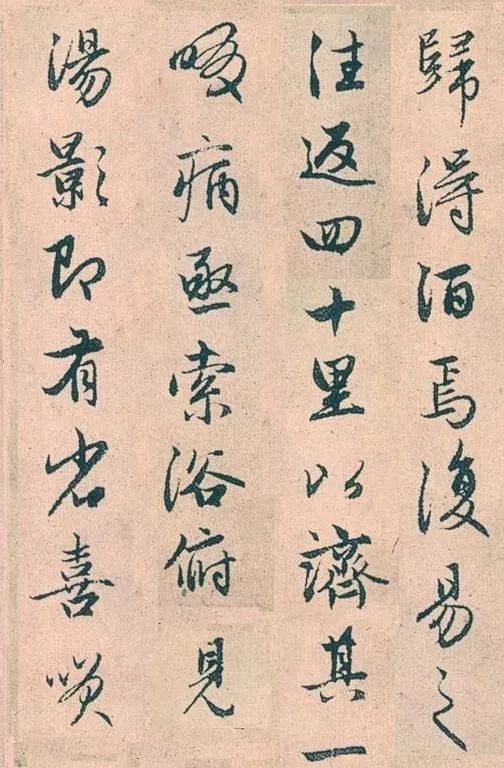 歸得酒焉復易之
往返四十里以濟其一
啜病亟索浴俯見
湯影即有若喜咲